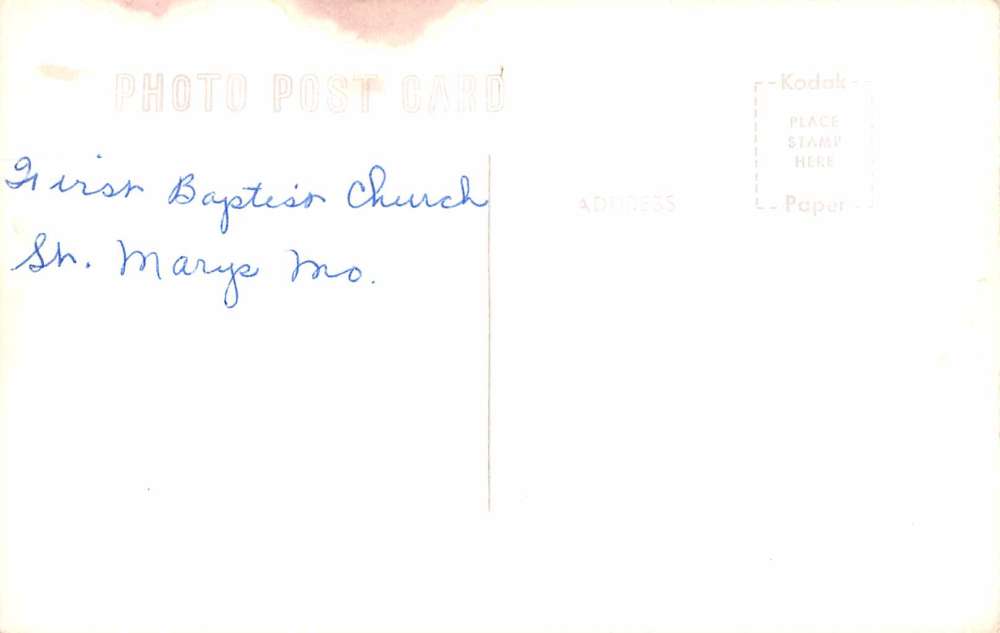 PHOTO POST CARD
Kodak
PLACE
STAMP
HERE
Paper
ADDRESS
First Baptist Church
St. Marys Mo.